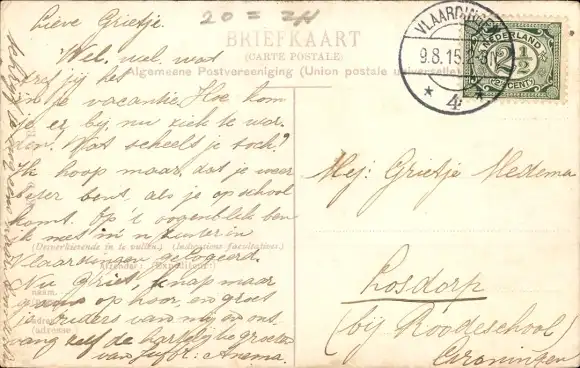 20 =
Lieve Grietje.
Wel, wel, wat
tref jij het
in de vacantie. Hoe kom
je er bij, nu ziek te wor-
den. Wat scheelt je toch?
Ik hoop maar, dat je weer
beter bent, als je op school
komt. Op 't oogenblik ben
ik met in
Vlaardingen gelogeerd.
Nu Griet, knap maar
gauw op hoor, en groet
je ouders van mij en ont-
vang zelf de hartelijke groeten
van Juffr: Anema.
BRIEFKAART
(CARTE POSTALE)
Algemeene Postvereeniging (Union postale universelle)
(Desverkiezende in te vullen.) (Indications facultatives.)
Afzender: (Expéditeur:)
naam.
(adresse)
VLAARDINGEN
9.8.15.
4
NEDERLAND
2 1/2
CENT
Mej: Grietje Medema
Losdorp
(bij Roodeschool)
Groningen